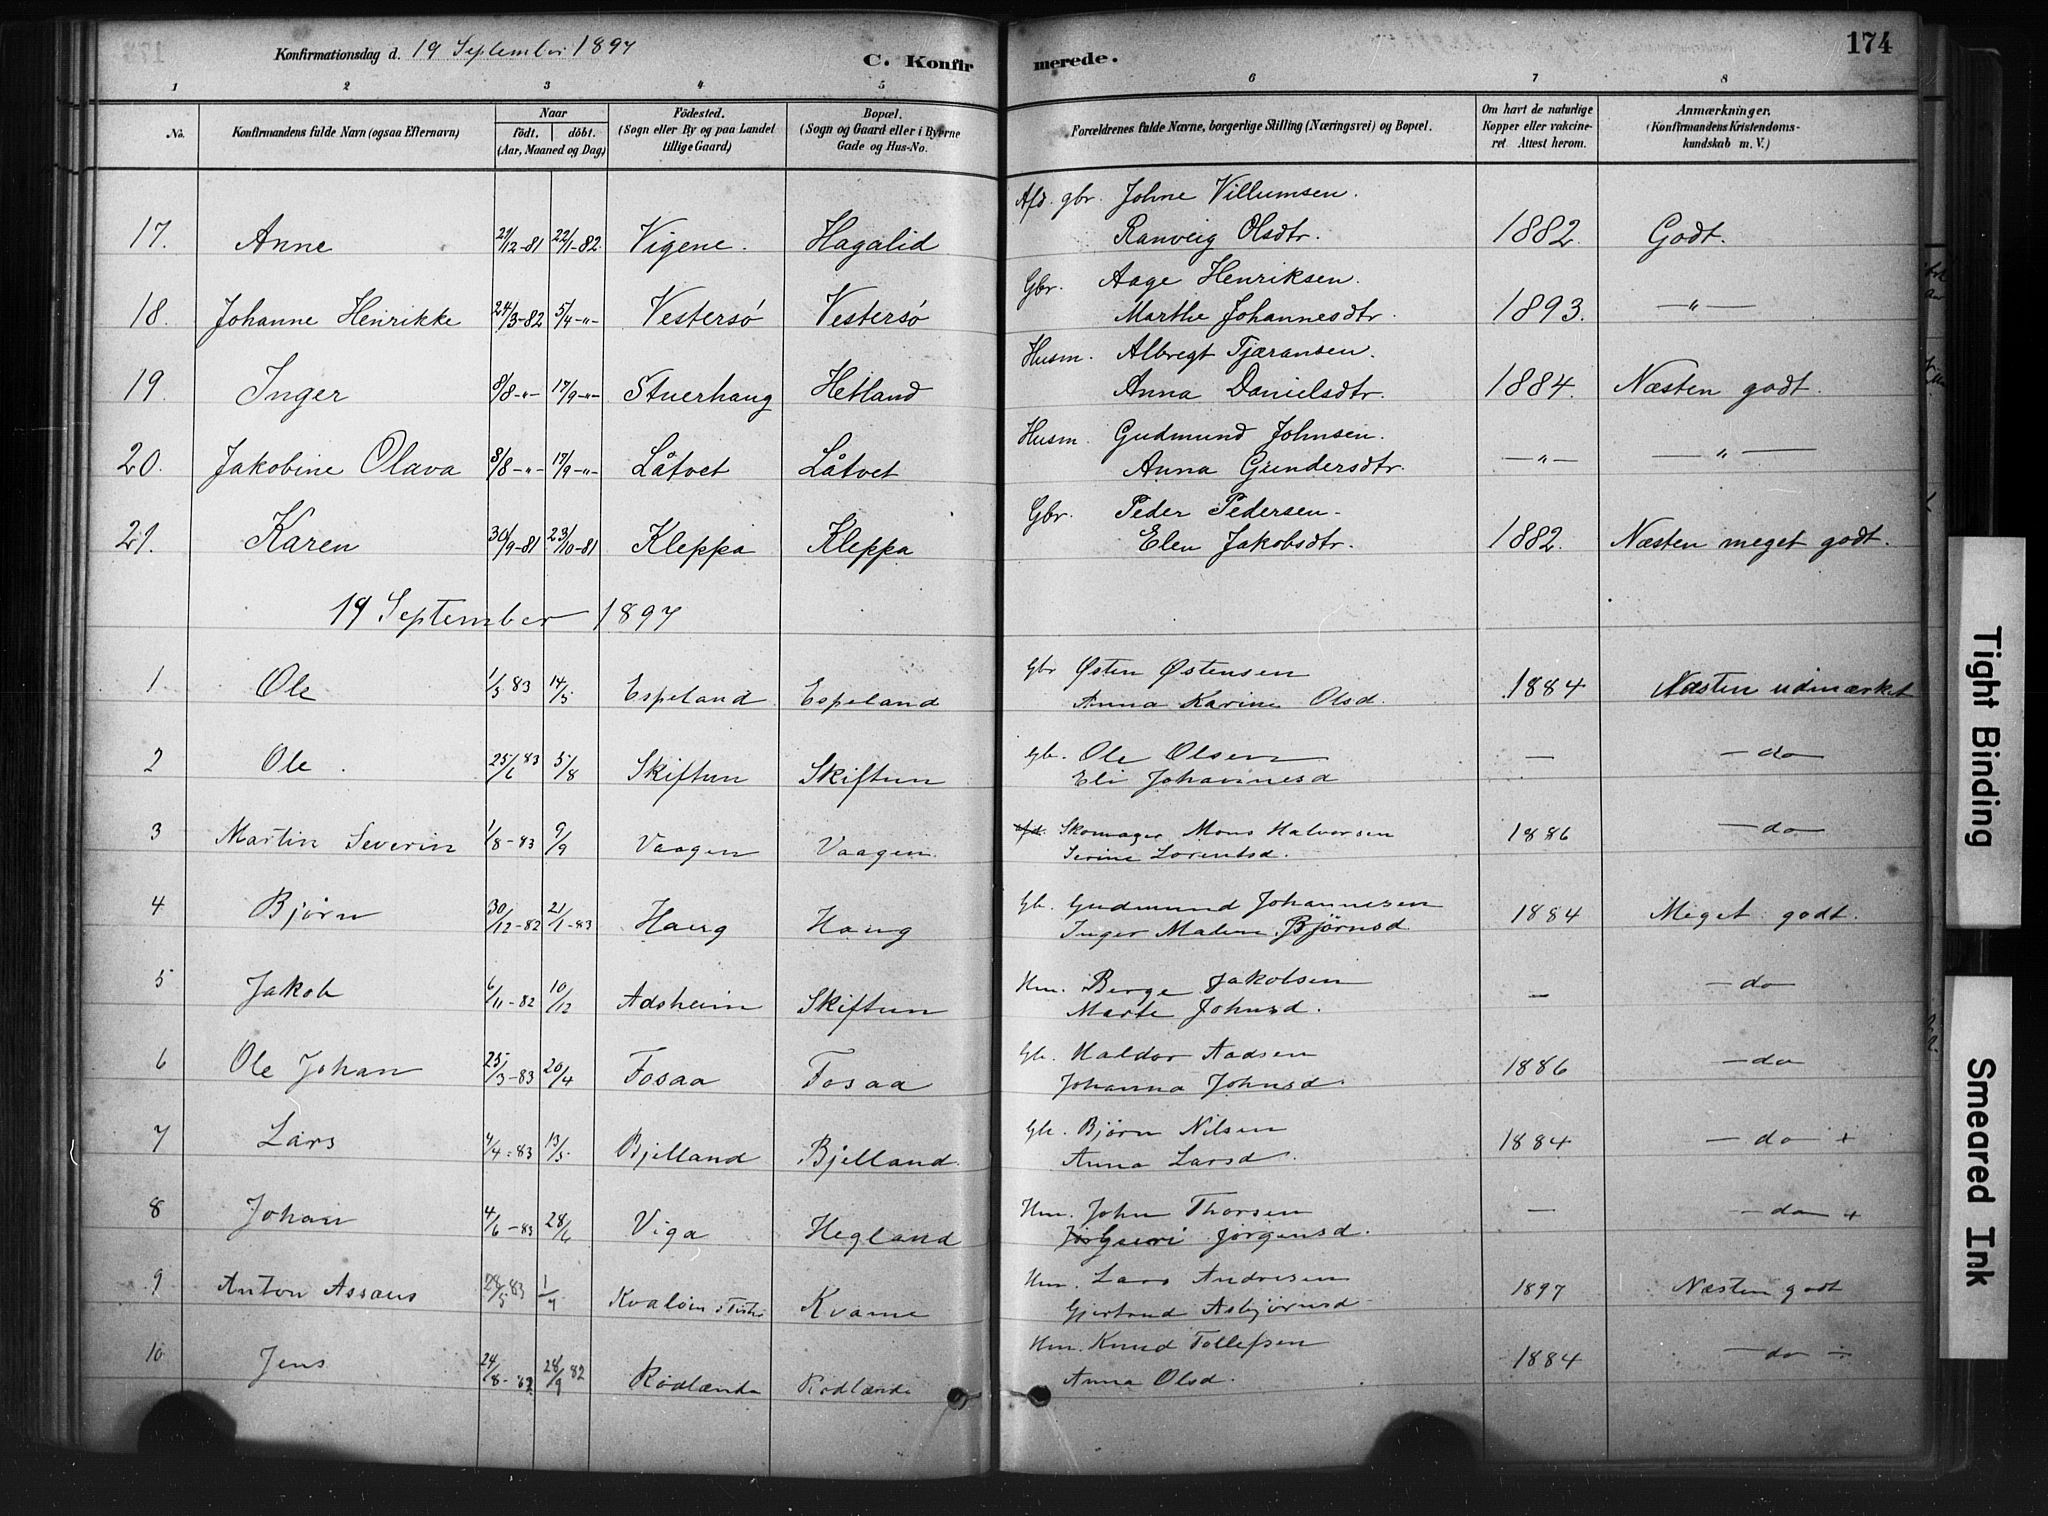 Konfirmationsdag d. 19 September 1897
C. Konfirmerede.
174
1 2 3 4 5 6 7 8
No.
Konfirmandens fulde Navn (ogsaa Efternavn)
Naar
født. døbt.
(Aar, Maaned og Dag)
Födested.
(Sogn eller By og paa Landet
tillige Gaard)
Bopæl.
(Sogn og Gaard eller i Byerne
Gade og Hus-No.
Forældrenes fulde Navne, borgerlige Stilling (Næringsvei) og Bopæl.
Om havt de naturlige
Kopper eller vakcine-
ret. Attest herom.
Anmærkninger.
(Konfirmandens Kristendoms-
kundskab m. V.)
Afd. gbr. Johne Villumsen.
17. Anne 21/12-81 22/1-82. Vigene. Hagalid Ranveig Olsdtr. 1882. Godt.
Gbr. Aage Henriksen.
18. Johanne Henrikke 24/3-82 5/4-"- Vestersø Vestersø Marthe Johannesdtr. 1893. —"—
Husm. Albregt Tjæransen.
19. Inger 8/8-"- 17/9-"- Stuerhaug Hetland Anna Danielsdtr. 1884. Næsten godt.
Husm. Gudmund Johnsen.
20. Jakobine Olava 8/8-"- 17/9-"- Låtvet Låtvet Anna Gundersdtr. —"— —"—
Gbr. Peder Pedersen.
21. Karen 30/9-81 23/10-81 Kleppa Kleppa Elen Jakobsdtr. 1882. Næsten meget godt.
19 September 1897
1 Ole 1/3 83 14/3 Espeland Espeland Gbr Østen Østensen 1884 Næsten udmærket
Anna Karine Olsd.
2 Ole 25/6 83 5/8 Skiftun Skiftun Gb. Ole Olsen — —do
Eli Johannesd
3 Martin Severin 1/8-83 9/9 Vaagen Vaagen. afd. Skomager Mons Halvorsen 1886 —do
Serine Lorentsd.
4 Bjørn 30/12-82 21/1-83 Haug Haug Gb. Gudmund Johannesen 1884 Meget godt.
Inger Malene Bjørnsd.
5 Jakob 6/11-82 10/12 Adsheim Skiftun Hm. Berge Jakobsen — —do
Marte Johnsd.
6 Ole Johan 25/3-83 20/4 Fosaa Fosaa Gb. Haldor Aadsen 1886 —do
Johanna Johnsd.
7 Lars 4/4-83 13/5 Bjelland Bjelland. Gb. Bjørn Nilsen 1884 —do +
Anna Larsd.
8 Johan 4/6-83 28/6 Viga Hegland Hm. John Thorsen — —do +
Guri Jörgensd.
9 Anton Assaus 28/5 83 1/7 Kvaløen i Kvame Hm. Lars Andresen 1897 Næsten godt
Gjertrud Asbjørnsd
10 Jens 24/8 28/9 82 Rødlænde Rødlænde Hm. Knud Tollefsen 1884 —do ÷
Anna Olsd.
Tight Binding
Smeared Ink